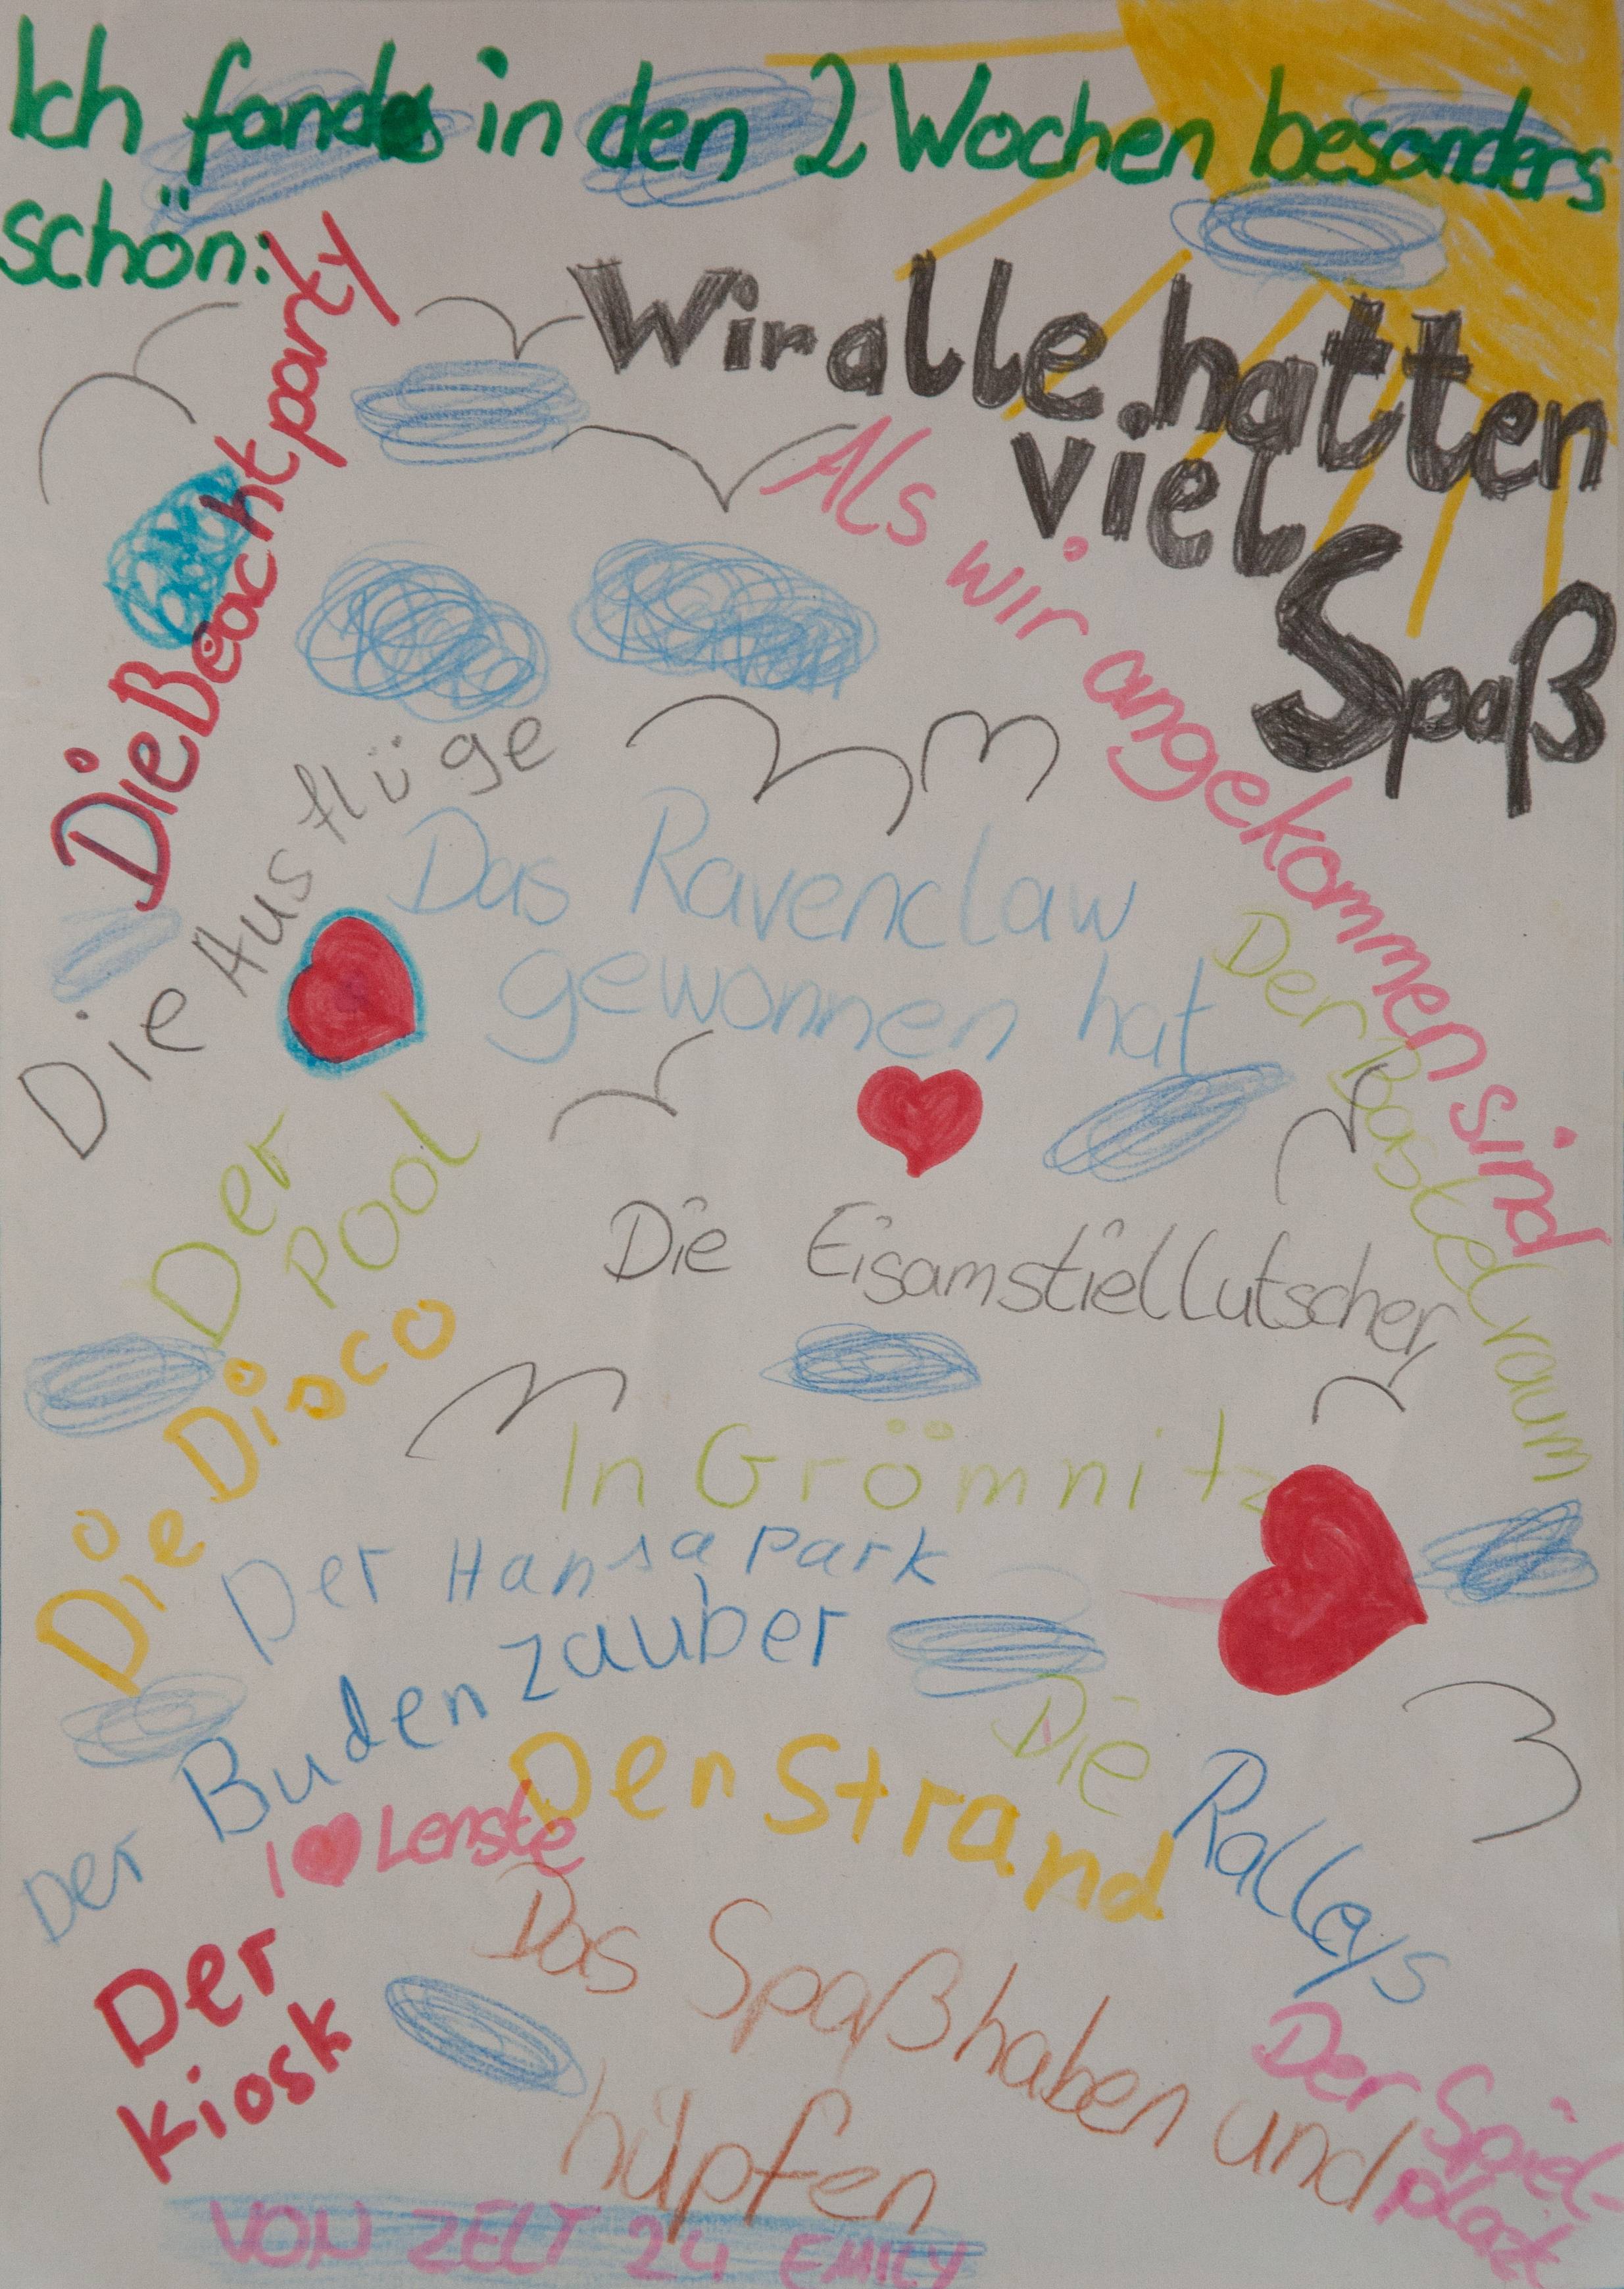 Ich fands in den 2 Wochen besonders
schön:
Wir alle hatten
viel
Spaß
Die Beachtparty
Als wir angekommen sind
Die Ausflüge
Das Ravenclaw
gewonnen hat
Der Bastelraum
Der
Pool
Die Eisamstiellutscher
Die Disco
In Grömnitz
Der Hansa Park
Der Budenzauber
Den Strand
Die Ralleys
I ❤ Lenste
Das Spaßhaben und
hüpfen
Der
Kiosk
Der Spiel-
platz
VON ZELT 24 EMILY